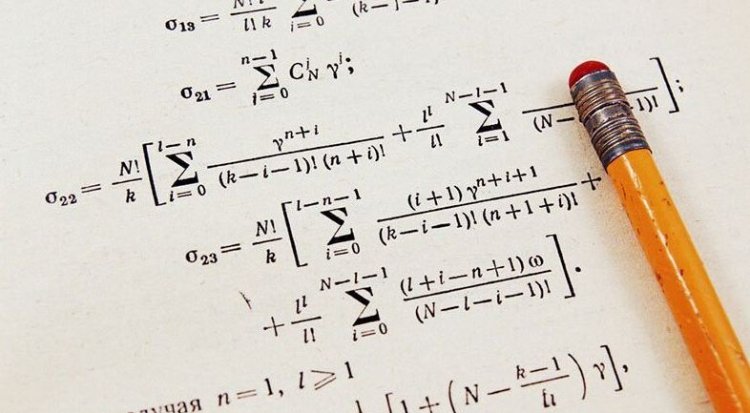 σ₁₃ = N! / l! k ∑ i=0 (k−i−1)!
σ₂₁ = ∑_{i=0}^{n−1} C_N^i γ^i;
σ₂₂ = N!/k [ ∑_{i=0}^{l−n} γ^{n+i} / (k−i−1)! (n+i)! + l^l/l! ∑_{i=1}^{N−l−1} / (N− −1)! ];
σ₂₃ = N!/k [ ∑_{i=0}^{l−n−1} (i+1) γ^{n+i+1} / (k−i−1)! (n+1+i)! +
+ l^l/l! ∑_{i=0}^{N−l−1} (l+i−n+1) ω / (N−l−i−1)! ].
n=1, l⩾1
[1 + (N − k−1 / ) γ],